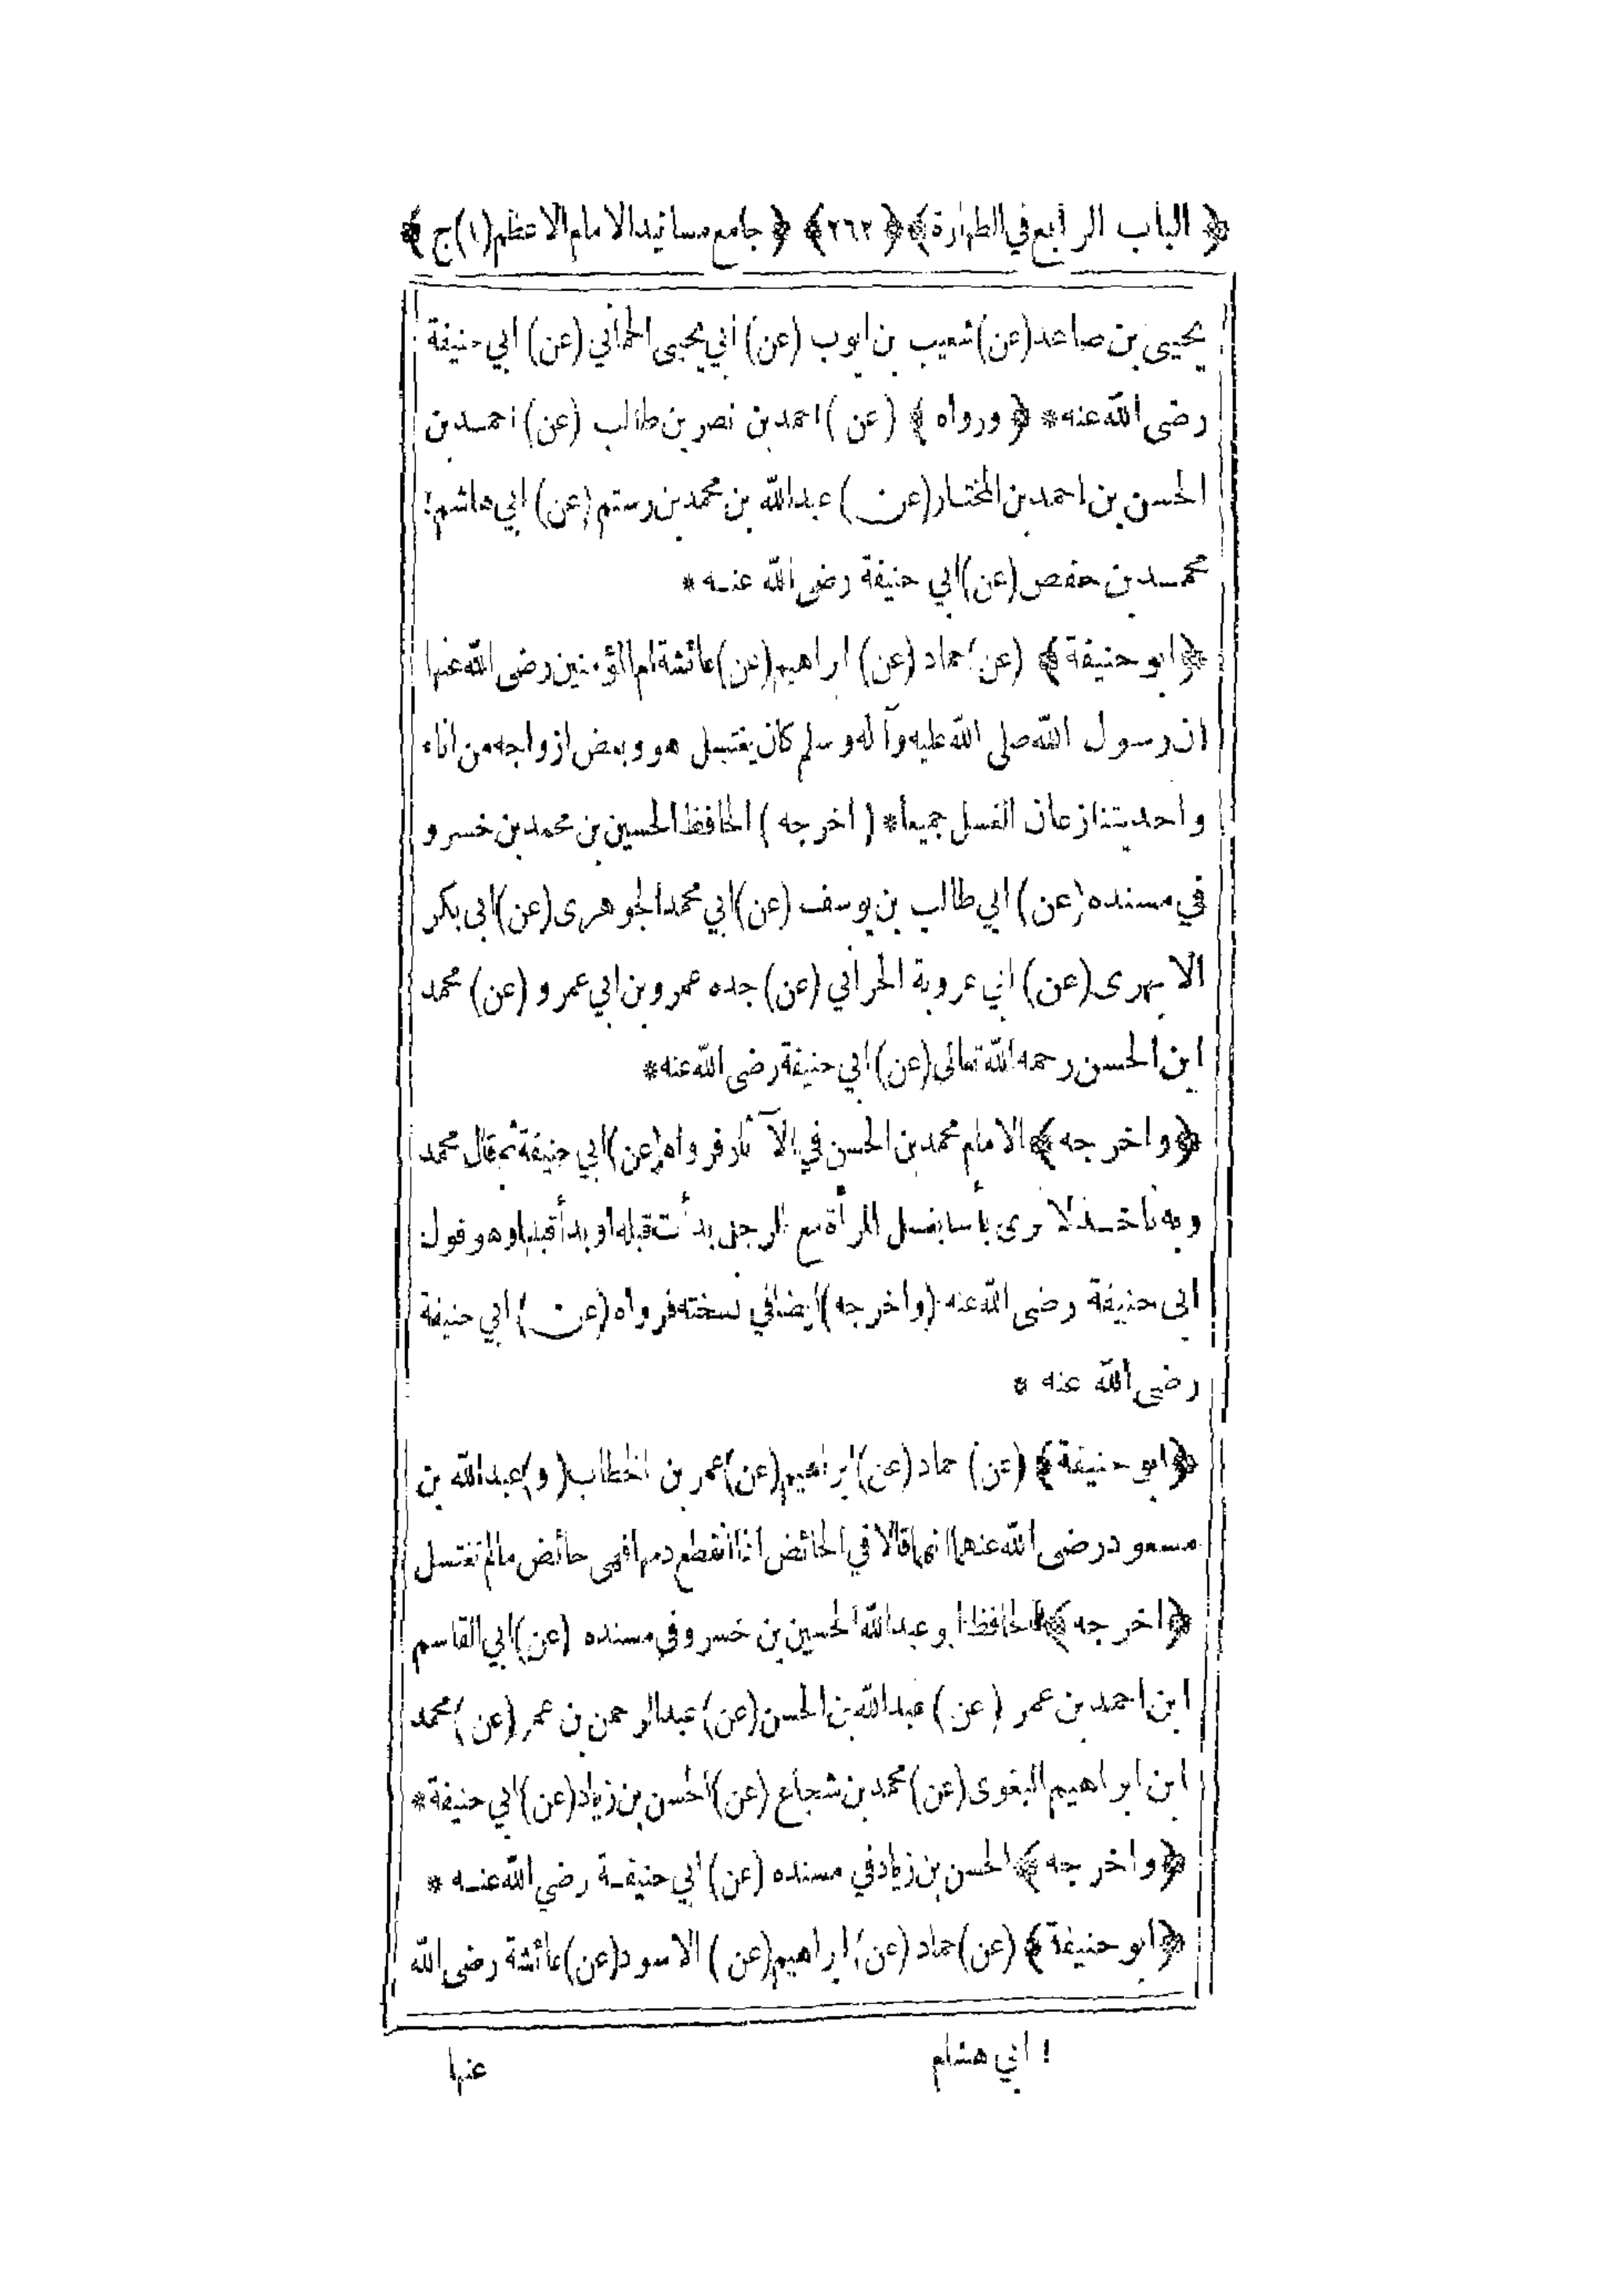 ﴿ الباب الرابع في الطهارة ﴾ ﴿ ٢٦٢ ﴾ ﴿ جامع مسانيد الامام الاعظم (١) ج ﴾
يحيى بن صاعد (عن) شعيب بن ايوب (عن) ابي يحيى الحماني (عن) ابي حنيفة
رضى الله عنه * ﴿ ورواه ﴾ (عن) احمد بن نصر بن طالب (عن) احمد بن
الحسن بن احمد بن المختار (عن) عبدالله بن محمد بن رستم (عن) ابي هاشم !
محمد بن حفص (عن) ابي حنيفة رضى الله عنه *
﴿ ابو حنيفة ﴾ (عن) حماد (عن) ابراهيم (عن) عائشة ام المؤمنين رضى الله عنها
ان رسول الله صلى الله عليه وآله وسلم كان يغتسل هو وبعض ازواجه من اناء
واحد يتنازعان الغسل جميعا * (اخرجه) الحافظ الحسين بن محمد بن خسرو
في مسنده (عن) ابي طالب بن يوسف (عن) ابي محمد الجوهرى (عن) ابى بكر
الابهرى (عن) ابي عروبة الحراني (عن) جده عمرو بن ابي عمرو (عن) محمد
ابن الحسن رحمه الله تعالى (عن) ابي حنيفة رضى الله عنه *
﴿ واخرجه ﴾ الامام محمد بن الحسن في الآثار فرواه (عن) ابي حنيفة ثم قال محمد
وبه ناخذ لا نرى بأسا بغسل المرأة مع الرجل بدأت قبله او بدأ قبلها وهو قول
ابى حنيفة رضى الله عنه (واخرجه) ايضا في نسخته فرواه (عن) ابي حنيفة
رضى الله عنه *
﴿ ابو حنيفة ﴾ (عن) حماد (عن) ابراهيم (عن) عمر بن الخطاب (و) عبدالله بن
مسعود رضى الله عنهما انهما قالا في الحائض اذا انقطع دمها فهى حائض مالم تغتسل
﴿ اخرجه ﴾ الحافظ ابو عبدالله الحسين بن خسرو فى مسنده (عن) ابي القاسم
ابن احمد بن عمر (عن) عبدالله بن الحسن (عن) عبدالرحمن بن عمر (عن) محمد
ابن ابراهيم البغوى (عن) محمد بن شجاع (عن) الحسن بن زياد (عن) ابي حنيفة *
﴿ واخرجه ﴾ الحسن بن زياد في مسنده (عن) ابي حنيفة رضي الله عنه *
﴿ ابو حنيفة ﴾ (عن) حماد (عن) ابراهيم (عن) الاسود (عن) عائشة رضى الله
! ابي هشام
عنها